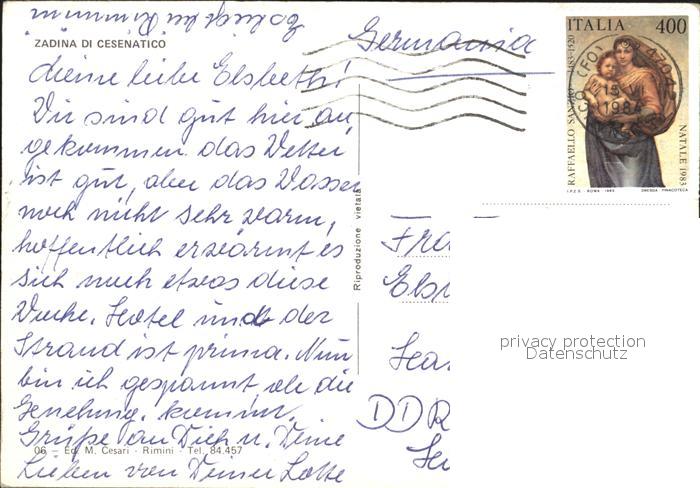 ZADINA DI CESENATICO
Meine liebe Elsbeth!
Wir sind gut hier an
gekommen das Wetter
ist gut, aber das Wasser
noch nicht sehr warm,
hoffentlich erwärmt es
sich noch etwas diese
Woche. Hotel und der
Strand ist prima. Nun
bin ich gespannt ob die
Genehmg. kommt.
Grüße an Dich u. Deine
Lieben von Deiner Lotte
06 - Ed. M. Cesari - Rimini - Tel. 84.457
Riproduzione vietata
Germania
ITALIA 400
RAFFAELLO SANZIO 1483-1520
NATALE 1983
I.P.Z.S. - ROMA - 1983 DRESDA PINACOTECA
(FO)
15 VI
1984
Fra
Els
DDR
privacy protection
Datenschutz